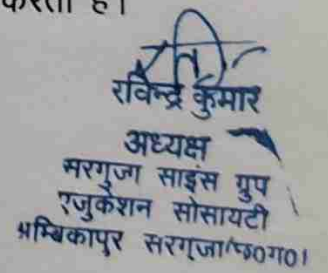 करता है।
रविन्द्र कुमार
अध्यक्ष
सरगुजा साइंस ग्रुप
एजुकेशन सोसायटी
अम्बिकापुर सरगुजा(छ०ग०)